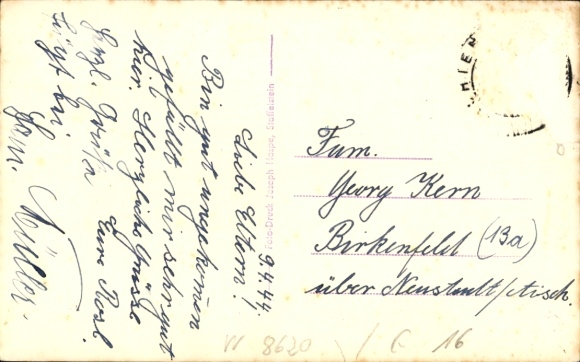 9.4.44.
Liebe Eltern!
Bin gut angekommen
gefällt mir sehr gut
hier. Herzliche Grüße
Eure Rosl.
Herzl. Grüße
Fam. Müller.
Foto-Druck Joseph Hospe, Staffelstein
Fam.
Georg Kern
Birkenfeld (13a)
über Neustadt/Aisch.
W 8620 / C 16